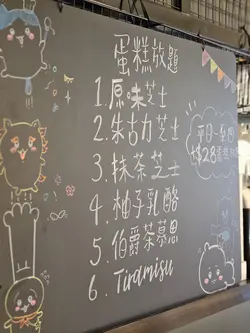 蛋糕放題
1.原味芝士
2.朱古力芝士
3.抹茶芝士
4.柚子乳酪
5.伯爵茶慕思
6.Tiramisu
平日一至四
+$28